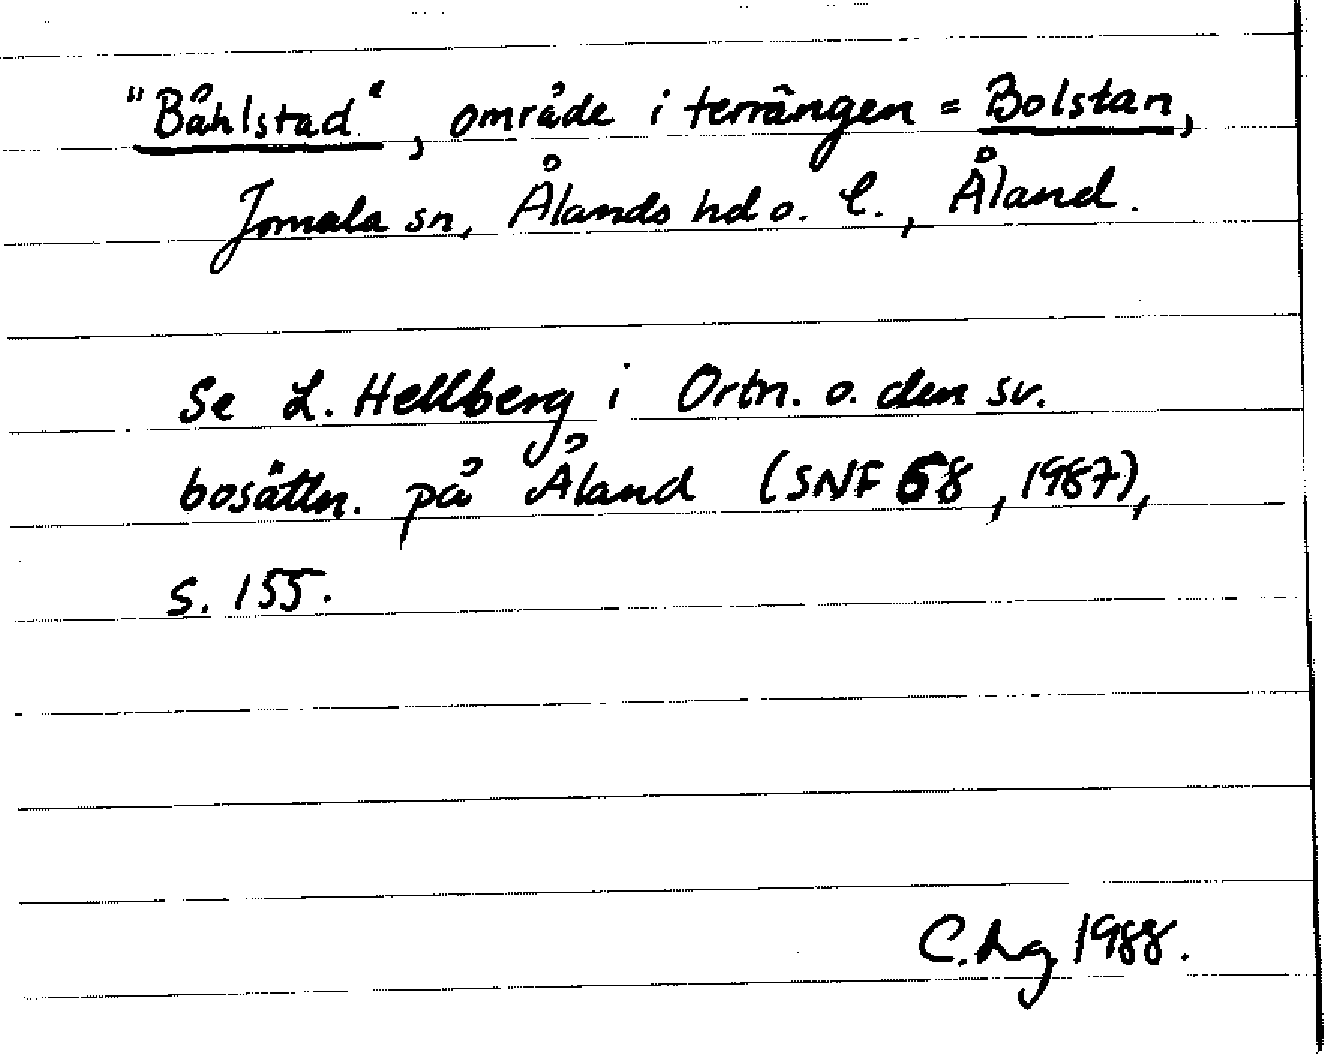 "Båhlstad", område i terrängen = Bolstan,
Jomala sn, Ålands hd o. l., Åland.
Se L. Hellberg i Ortn. o. den sv.
bosättn. på Åland (SNF 68, 1987),
s. 155.
C. Lg 1988.